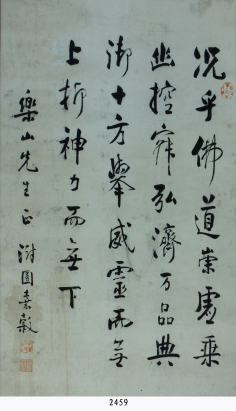 况乎佛道崇虚乘
幽控寂弘濟万品典
御十方舉威靈而無
上抑神力而無下
樂山先生正 澍園袁毅
2459